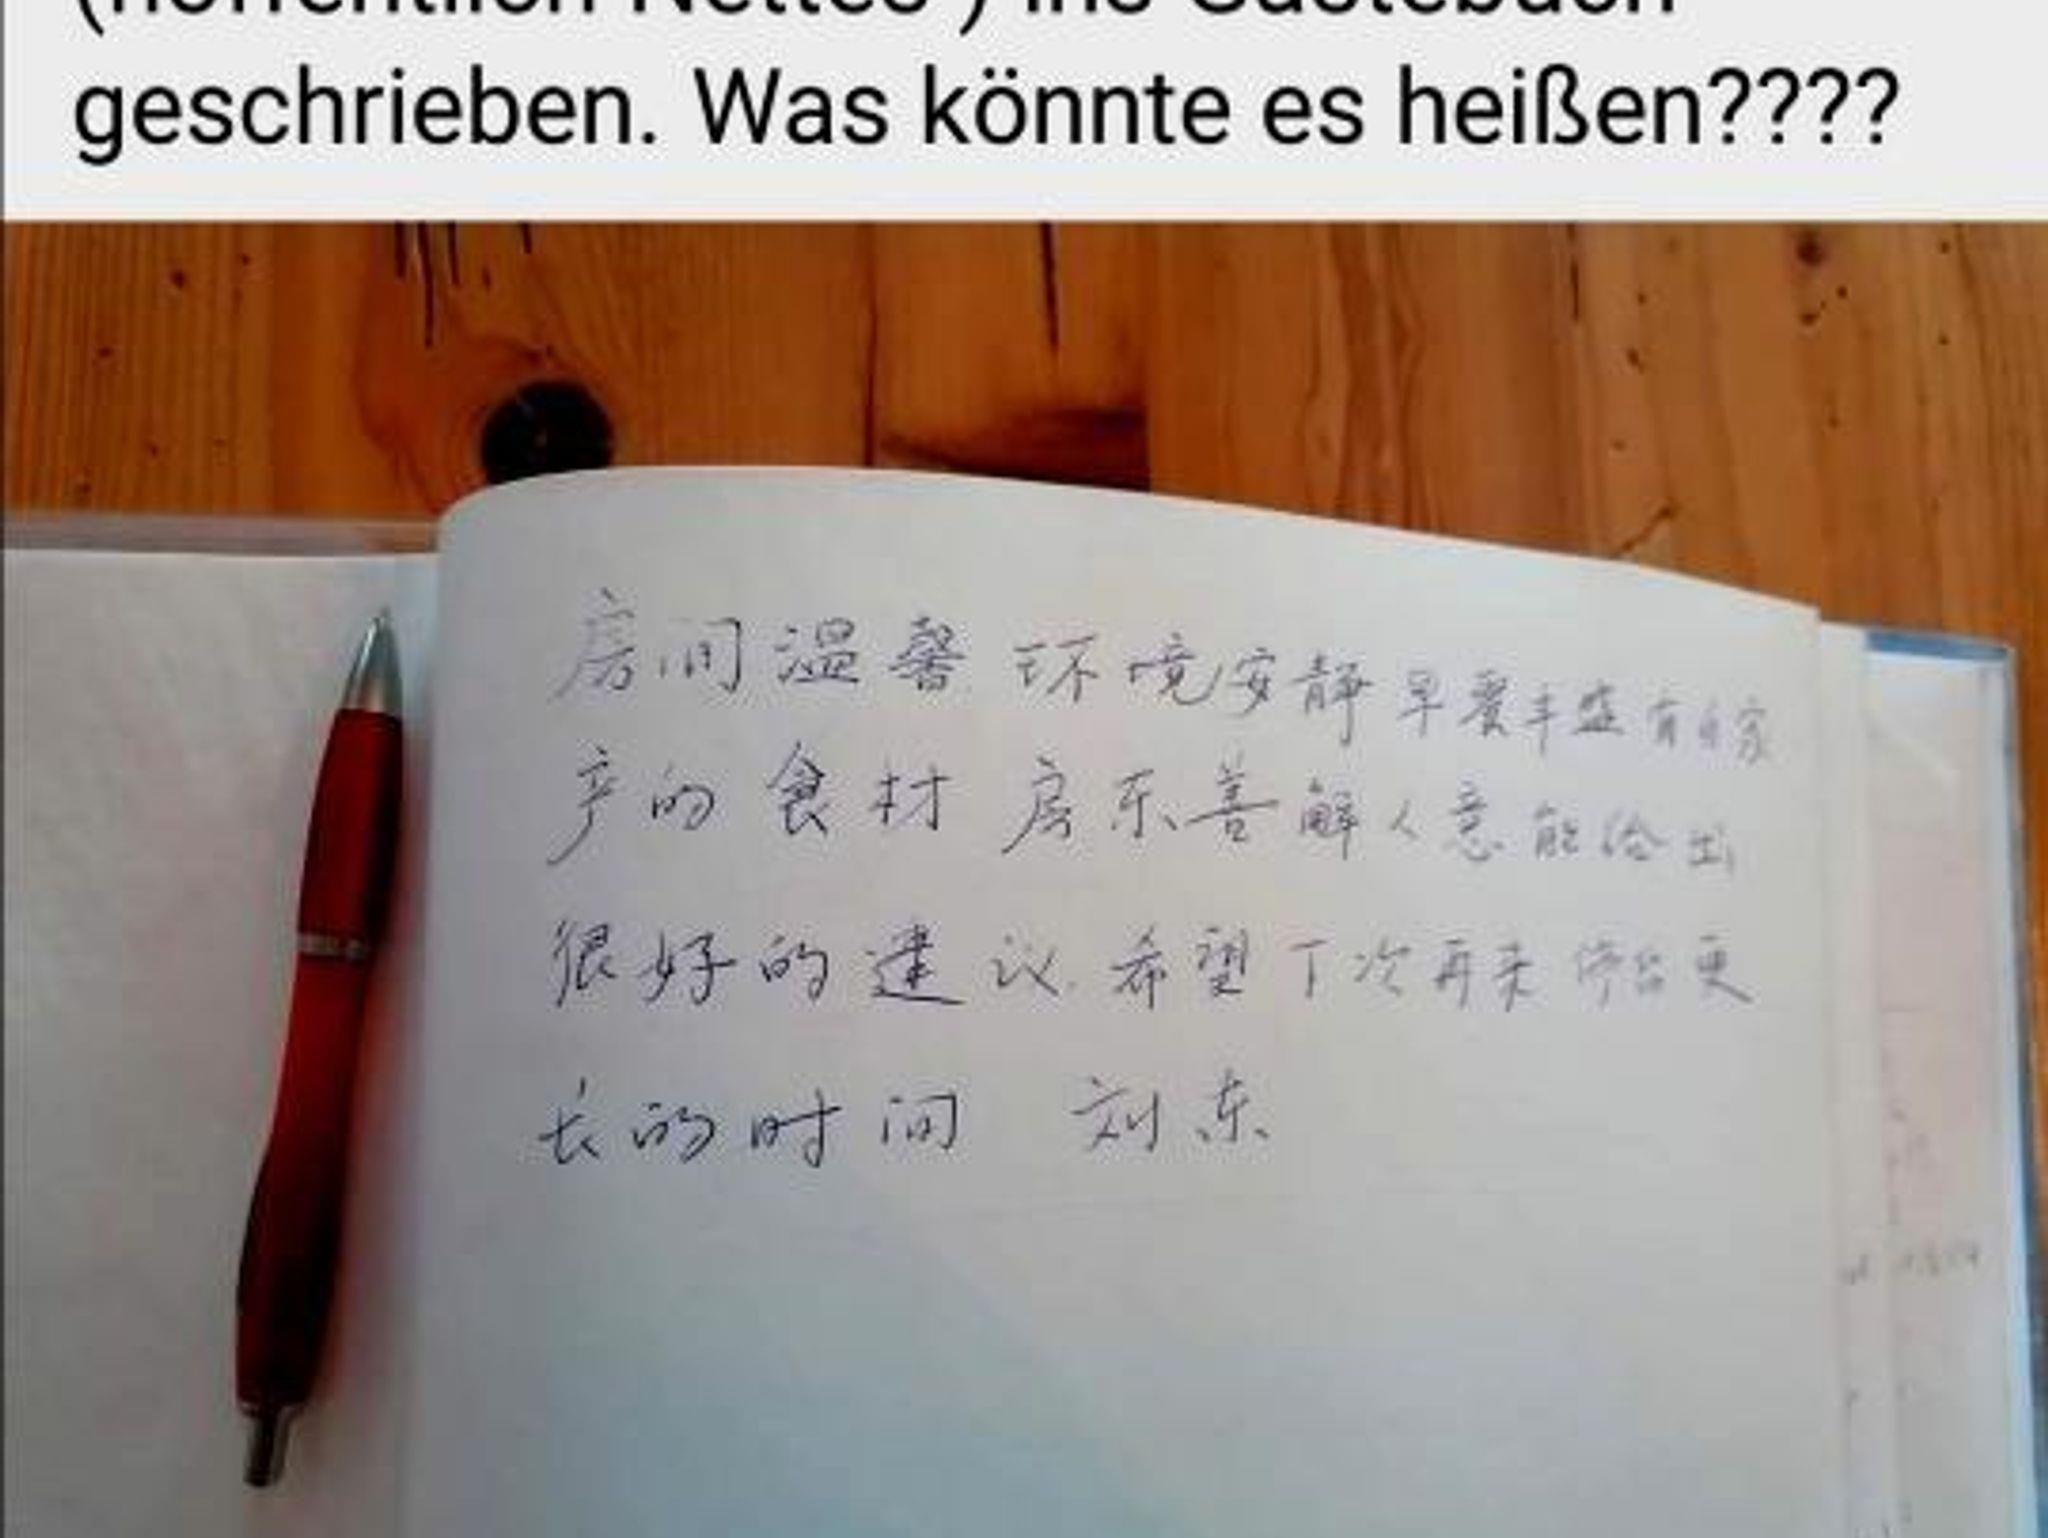 (hoffentlich Nettes ) ins Gästebuch
geschrieben. Was könnte es heißen????
房间温馨 环境安静 早餐丰盛 有自家
产的食材 房东善解人意 能给出
很好的建议 希望下次再来 停留更
长的时间 刘东